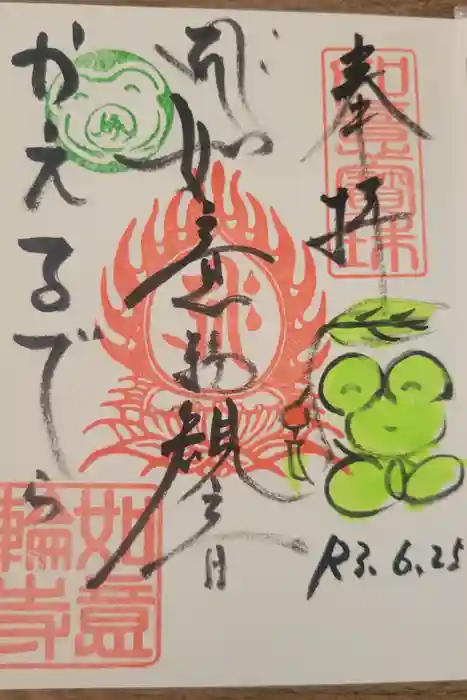 奉拝
如意宝珠
R3.6.25
如意輪観音
かえるでら
如意輪寺